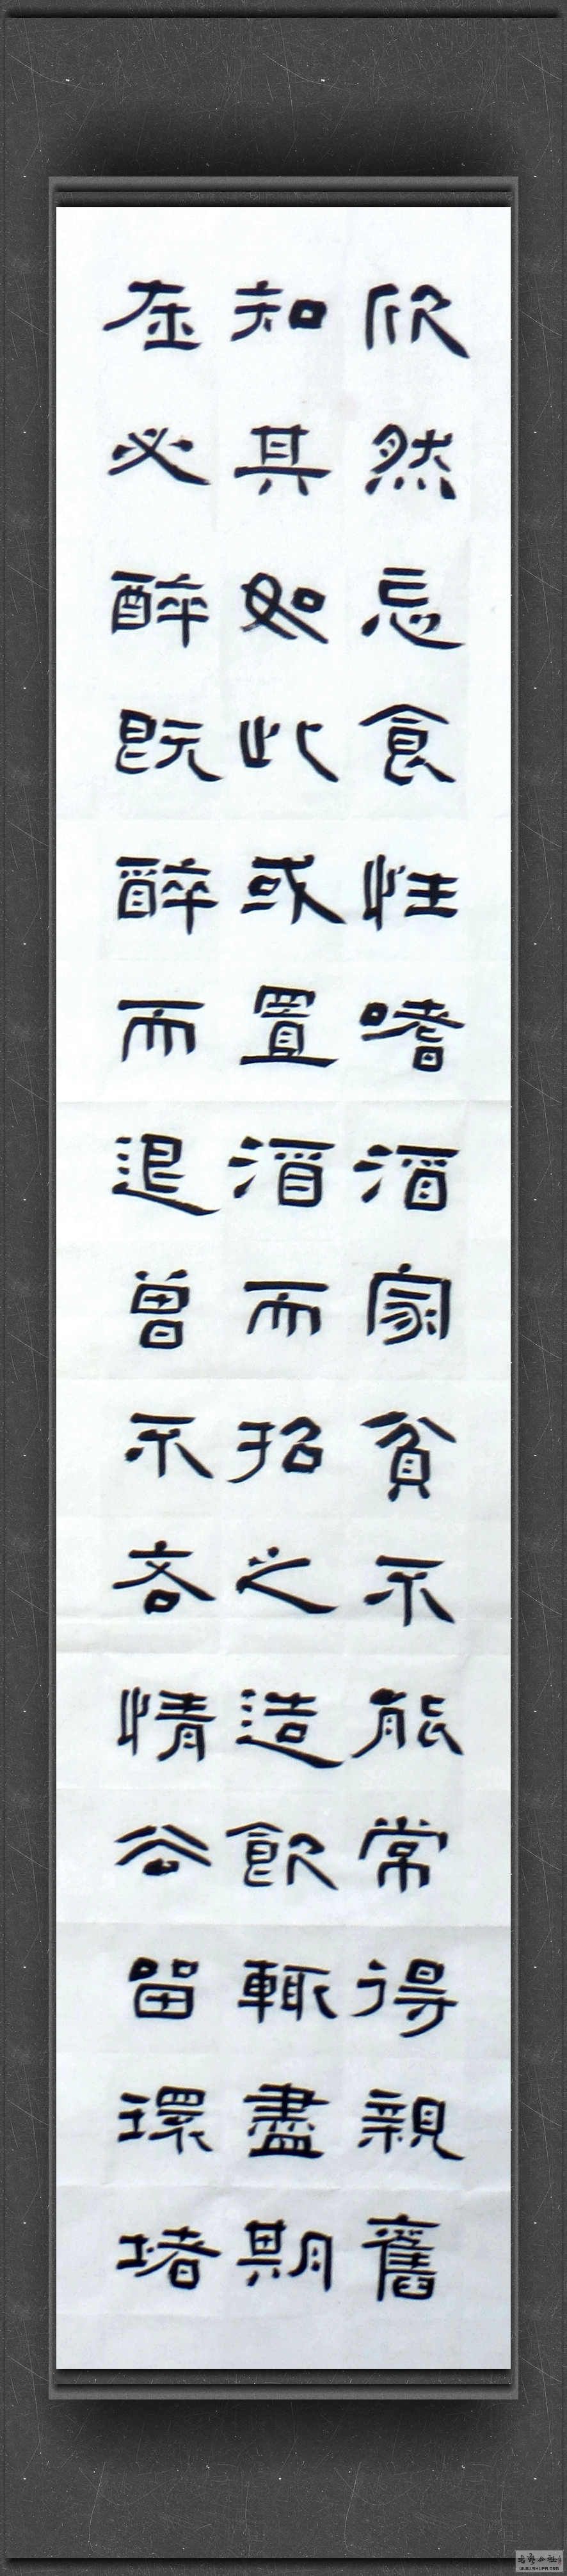 欣然忘食性嗜酒家貧不能常得親舊
知其如此或置酒而招之造飲輒盡期
在必醉既醉而退曾不吝情公留環堵
WWW.SHUFA.ORG